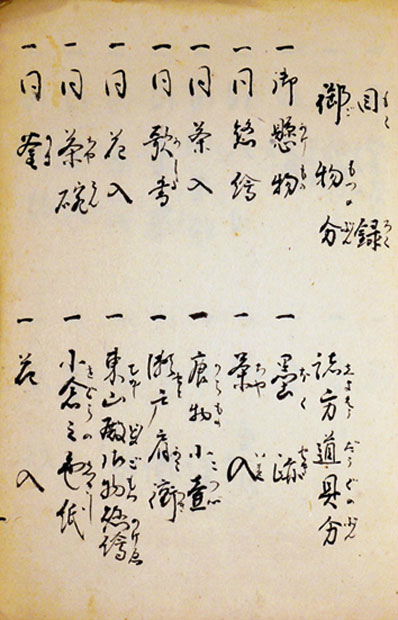 目録
御物分
一御懸物
一同懸繪
一同茶入
一同歌書
一同花入
一同茶碗
一同釜
諸方道具分
一墨跡
一茶入
一唐物小壺
一瀬戸肩衝
一東山殿御物懸繪
一小倉之色紙
一花入